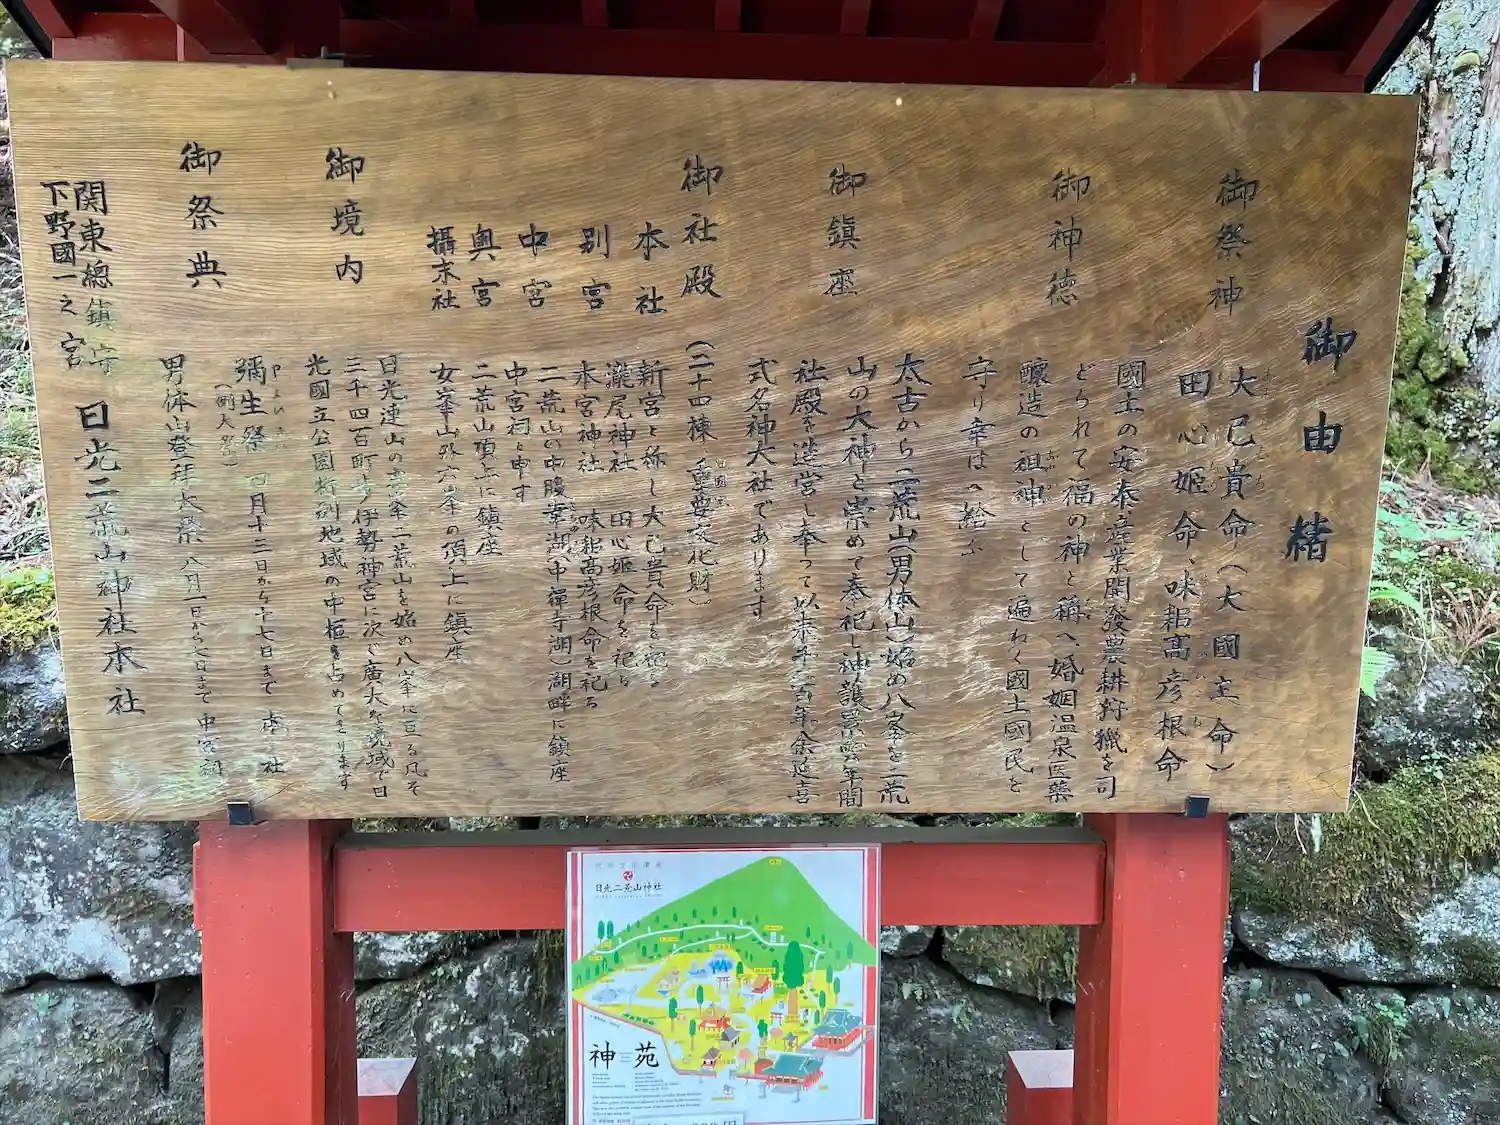 御由緒
御祭神
大己貴命(大國主命)
田心姫命、味耜高彦根命
御神徳
國土の安泰産業開發農耕狩獵を司
どられて福の神と稱へ婚姻温泉医藥
釀造の祖神として遍ねく國土國民を
守り幸はへ給ふ
御鎮座
太古から二荒山(男体山)始め八峯を二荒
山の大神と崇めて奉祀し神護景雲年間
社殿を造営し奉って以来千二百年余延喜
式名神大社であります
御社殿
(二十四棟 重要文化財)
本社
新宮と称し大己貴命を祀る
別宮
瀧尾神社 田心姫命を祀る
本宮神社 味耜高彦根命を祀る
中宮
二荒山の中腹幸湖(中禪寺湖)湖畔に鎮座
中宮祠と申す
奥宮
二荒山頂上に鎮座
攝末社
女峯山外六峯の頂上に鎮座
御境内
日光連山の主峯二荒山を始め八峯に亘る凡そ
三千四百町歩伊勢神宮に次ぐ廣大な境域で日
光國立公園特別地域の中枢を占めております
御祭典
彌生祭 四月十三日から十七日まで 本社
(例大祭)
男体山登拜大祭 八月一日から七日まで 中宮祠
関東總鎮守
下野國一之宮
日光二荒山神社本社
日光二荒山神社
神苑